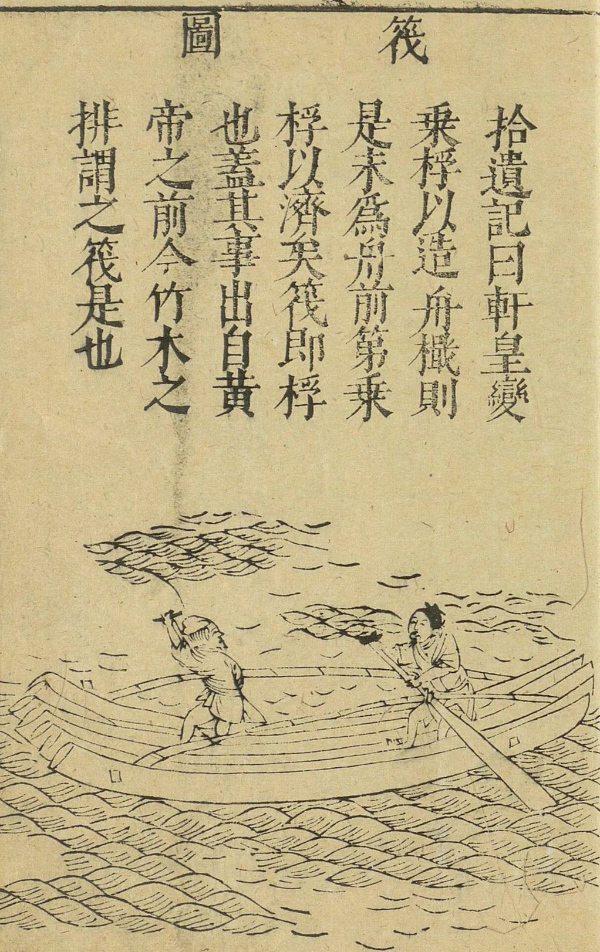 筏圖
拾遺記曰軒皇變
乗桴以造舟檝則
是未爲舟前第乗
桴以濟矣筏即桴
也蓋其事出自黄
帝之前今竹木之
排謂之筏是也